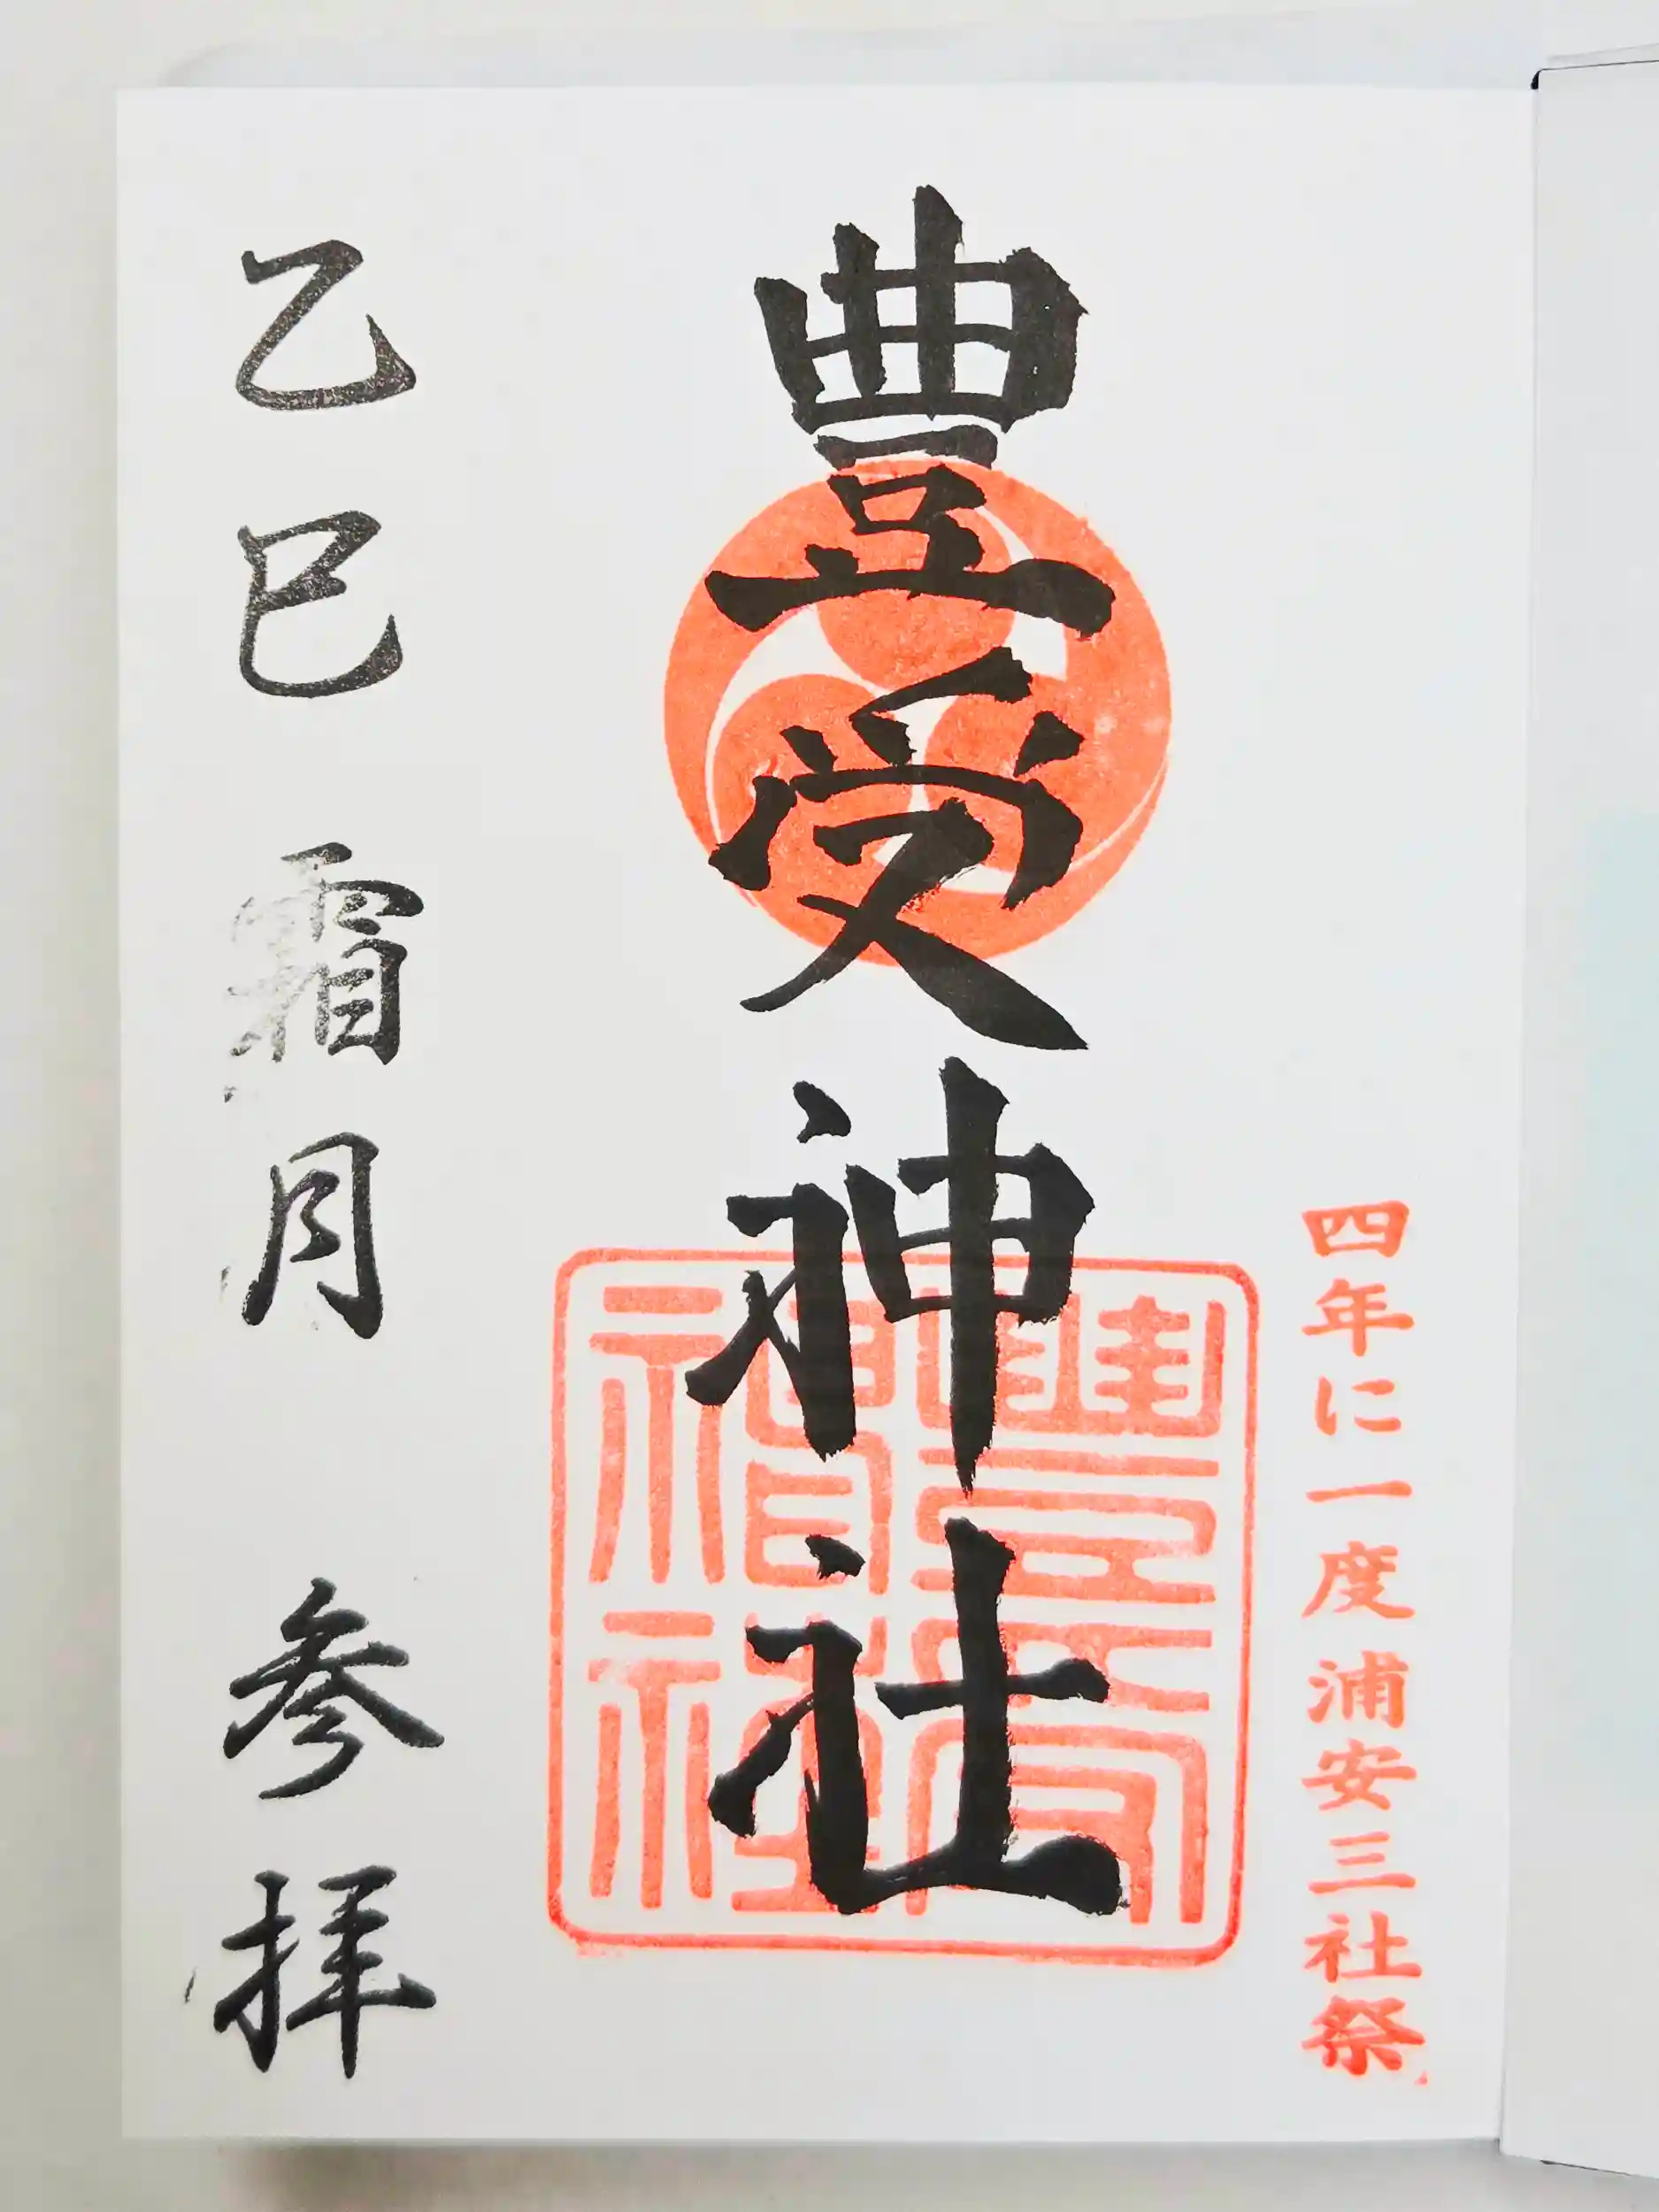 四年に一度浦安三社祭
豊受神社
豊受神社
乙巳霜月 参拝